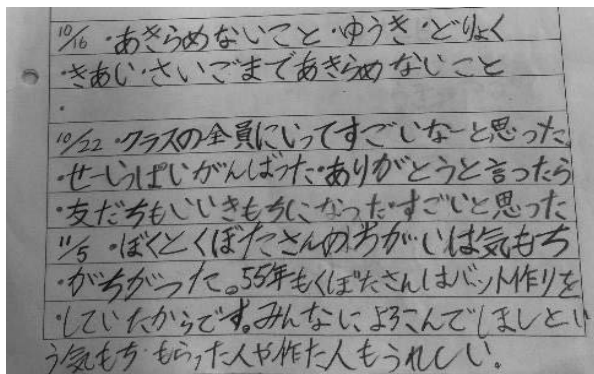 10/16 ・あきらめないこと・ゆうき・どりょく
・きあい・さいごまであきらめないこと
・
10/22 ・クラスの全員にいってすごいなーと思った
・せーいっぱいがんばった・ありがとうと言ったら
・友だちもいいきもちになった・すごいと思った
11/5 ・ぼくとくぼたさんのちがいは気もち
・がちがった。55年もくぼたさんはバット作りを
・していたからです。みんなによろこんでほしとい
う気もち・もらった人や作た人もうれしい。